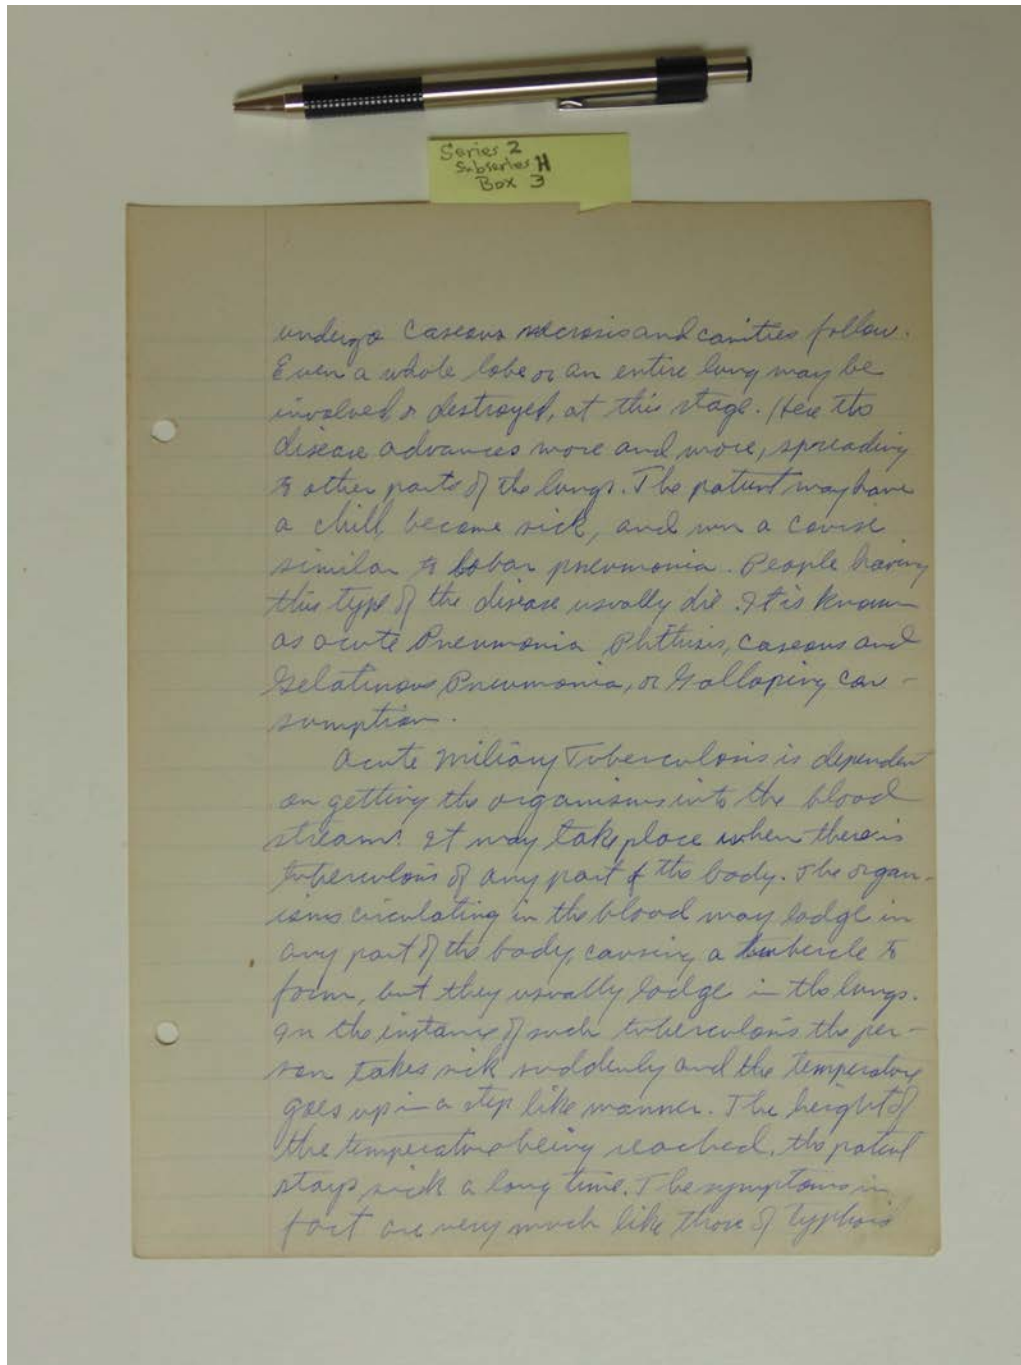 Series 2
Subseries H
Box 3
undergo Caseous necrosis and cavities follow.
Even a whole lobe or an entire lung may be
involved or destroyed, at this stage. Here the
disease advances more and more, spreading
to other parts of the lungs. The patient may have
a chill, become sick, and run a course
similar to lobar pneumonia. People having
this type of the disease usually die. It is known
as acute Pneumonia Phthisis, Caseous and
Gelatinous Pneumonia, or Galloping con-
sumption.
Acute Miliary Tuberculosis is dependent
on getting the organisms into the blood
stream. It may take place when there is
tuberculosis of any part of the body. The organ-
isms circulating in the blood may lodge in
any part of the body, causing a tubercle to
form, but they usually lodge in the lungs.
In the instance of such tuberculosis the per-
son takes sick suddenly and the temperature
goes up in a step like manner. The height of
the temperature being reached, the patient
stays sick a long time. The symptoms in
fact are very much like those of typhoid